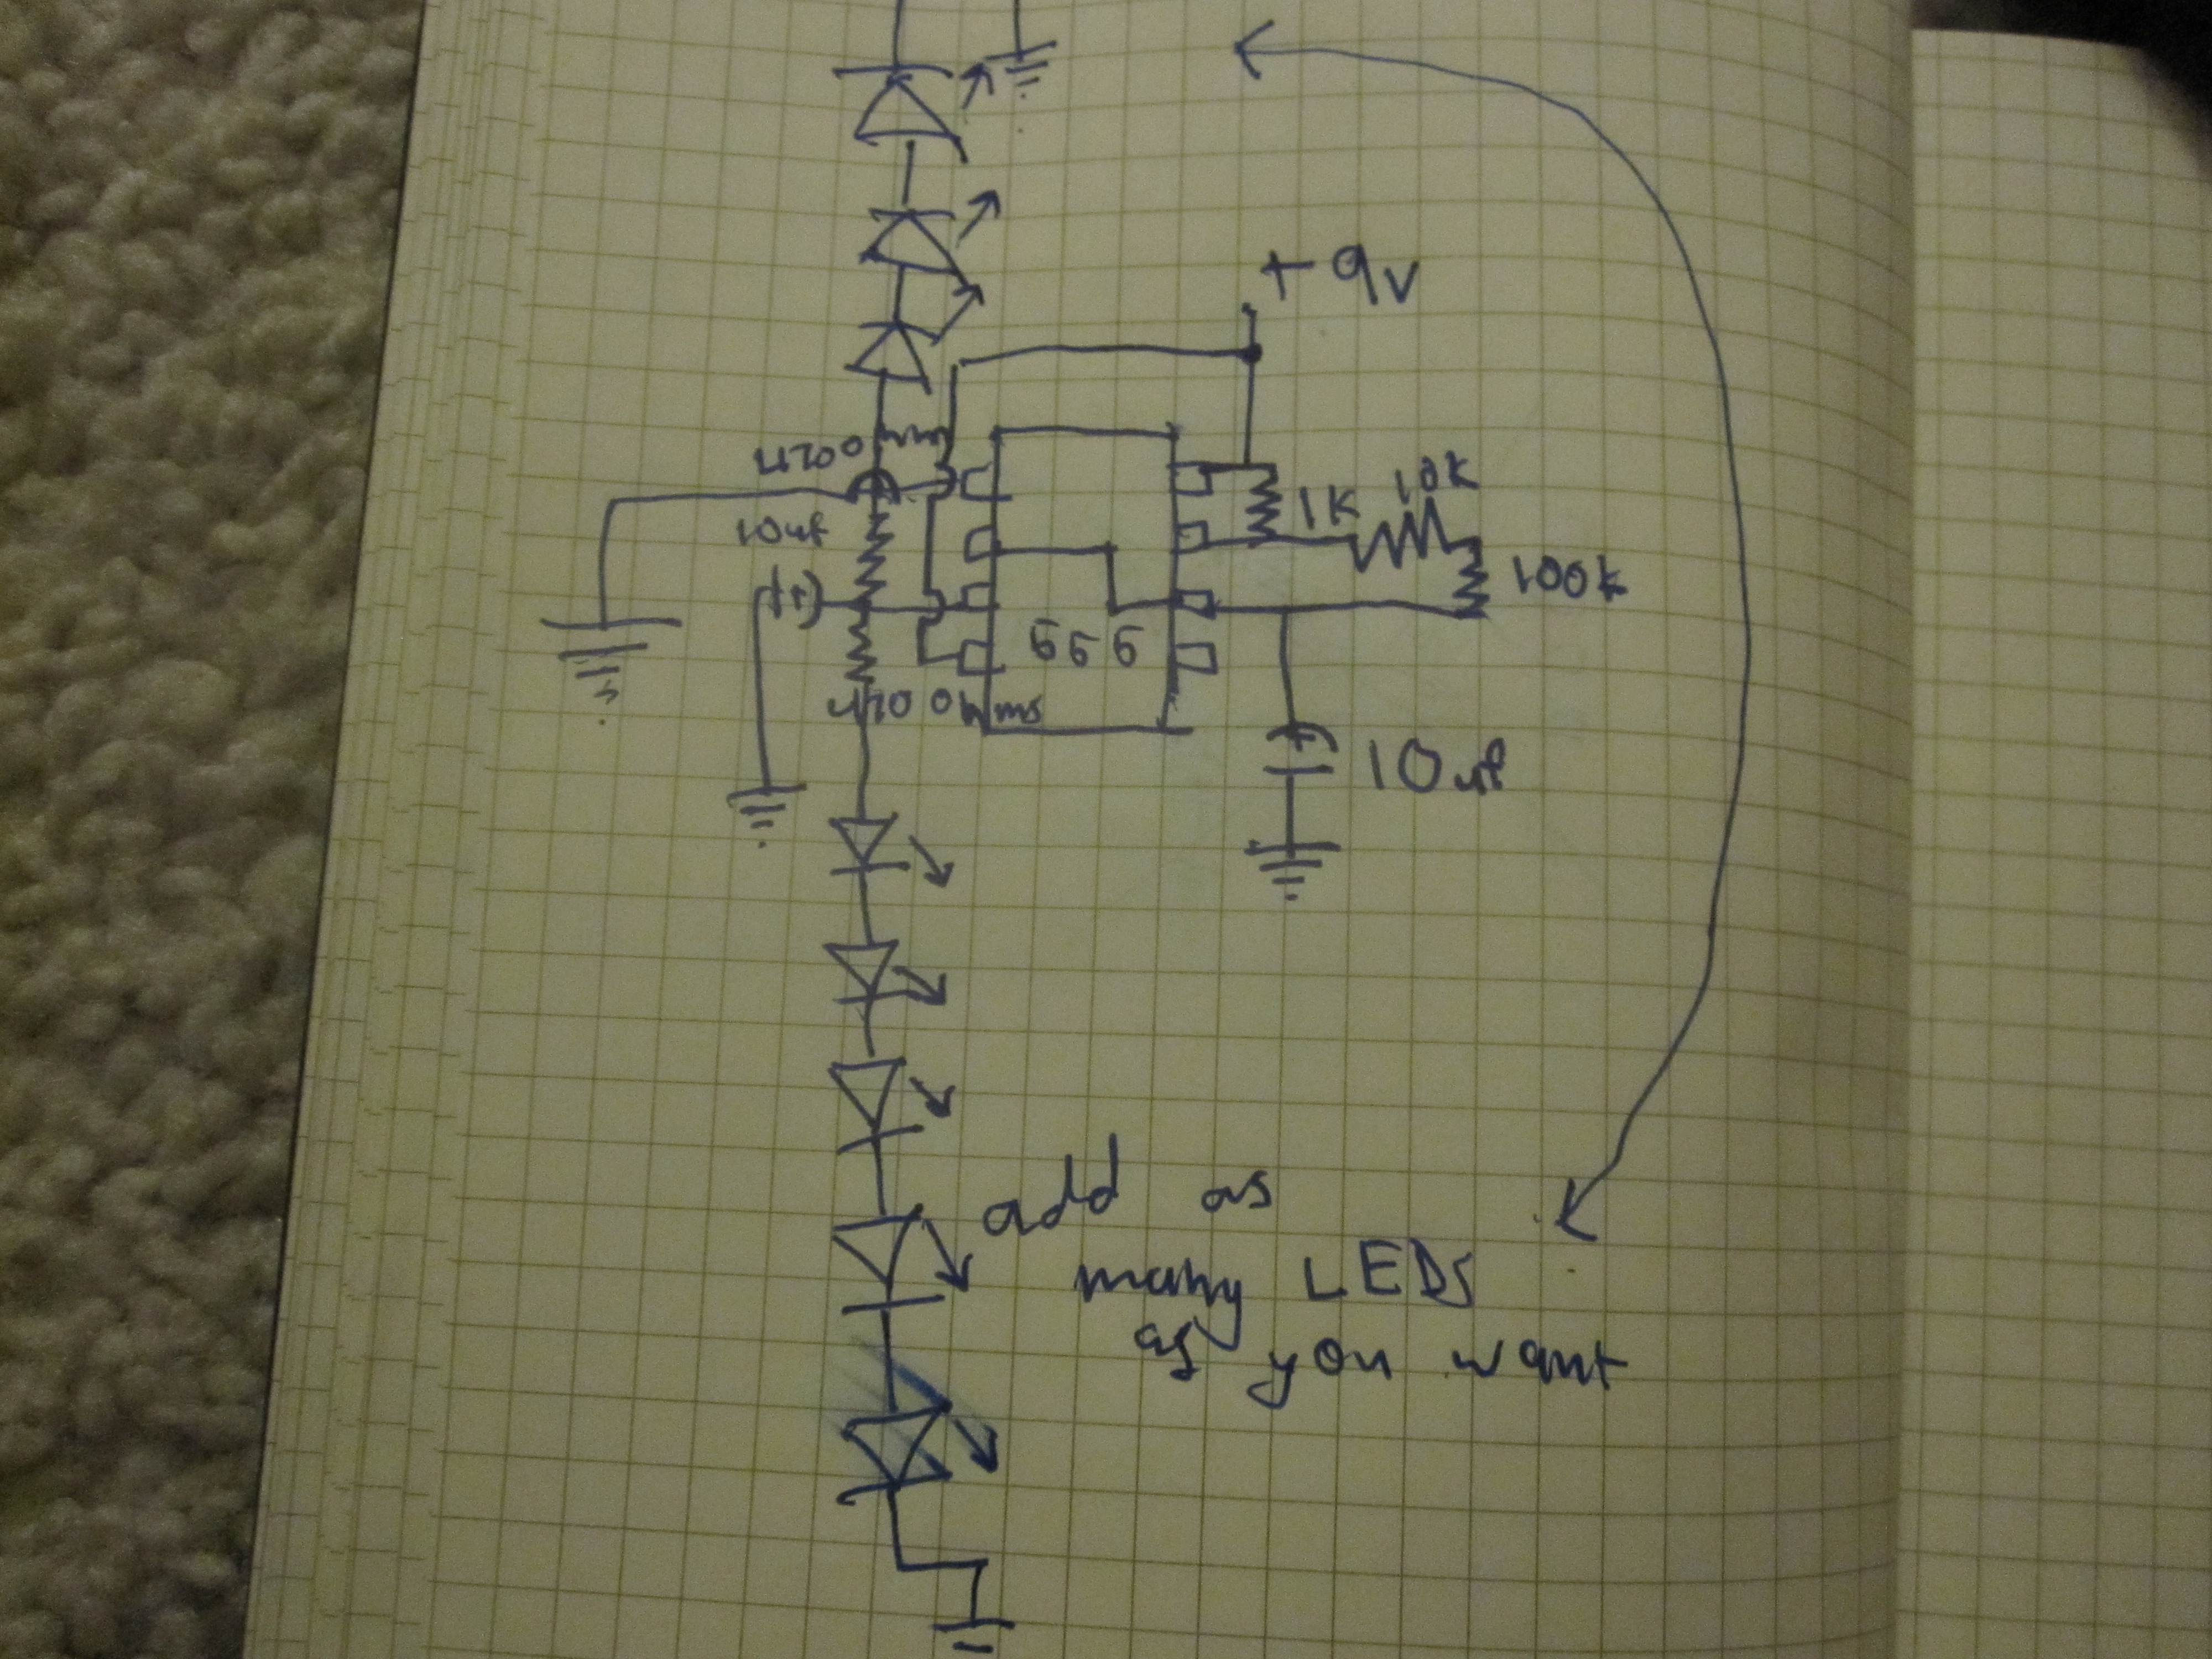 +9v
470 ohm
10k
1K
10uf
100k
555
470 Ohms
10uf
add as
many LEDs
as you want